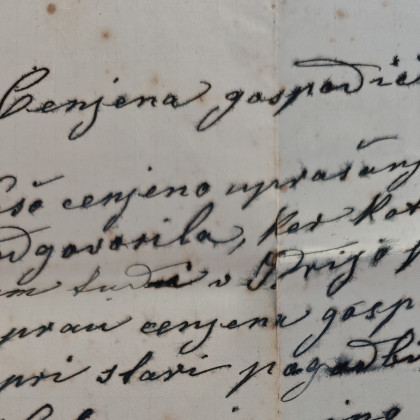 Cenjena gospodič
cenjeno uprašanj
odgovorila, ker
tudi v Idrijo
prav cenjena gosp
pri stari pogodbi